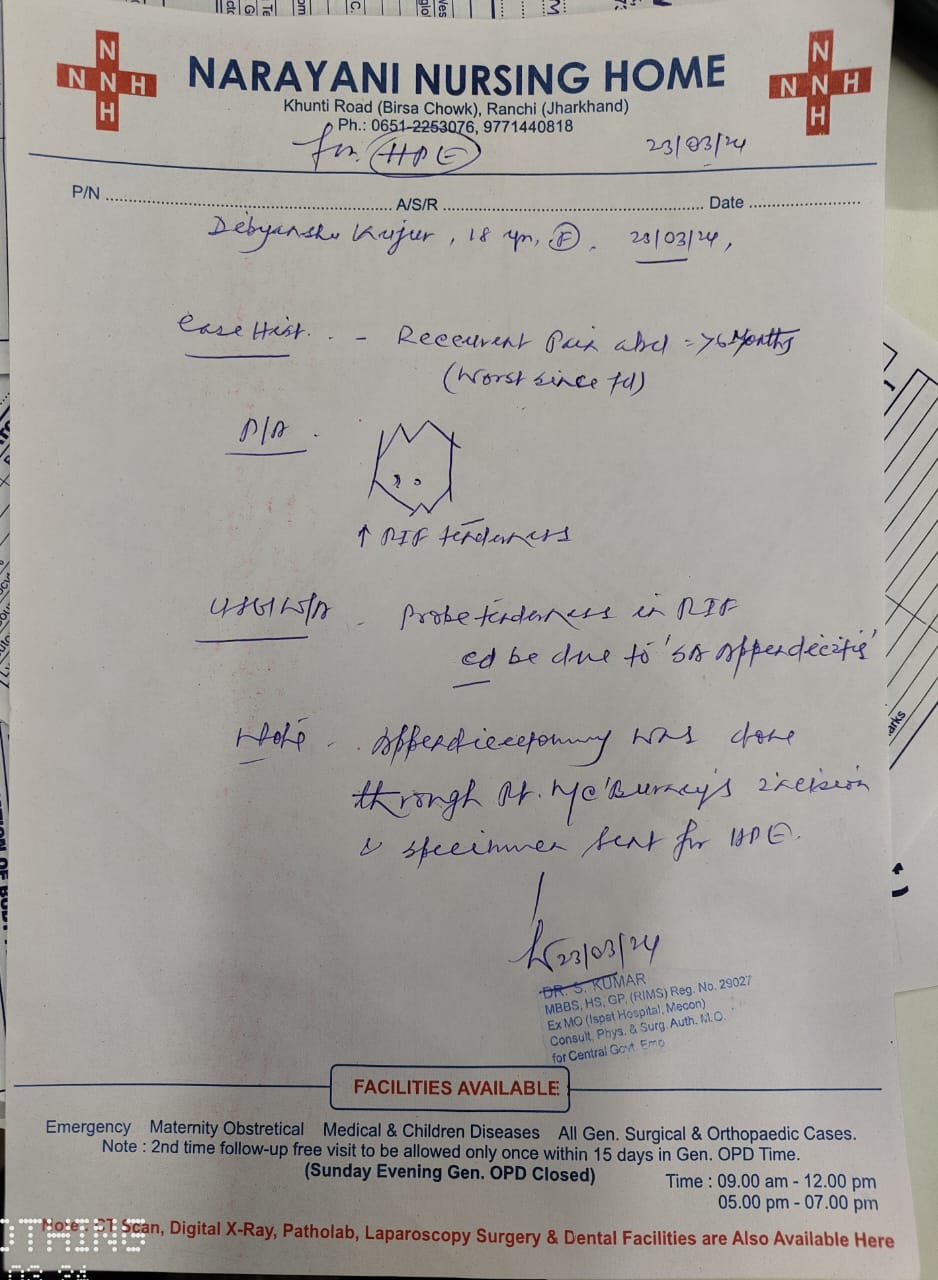 N
N N H
H
N
N N H
H
NARAYANI NURSING HOME
Khunti Road (Birsa Chowk), Ranchi (Jharkhand)
Ph.: 0651-2253076, 9771440818
for HPE
23/03/24
P/N ........ A/S/R ........ Date ........
Debyanshu Kujur, 18 yrs, F. 23/03/24,
Case Hist. - Reccurent Pain abd = >6 Months
(Worst since 7d)
P/A.
↑ RIF tenderness
USG W/A - Probe tenderness in RIF
cd be due to 'SA Appendicitis'
Note - Appendicectomy was done
through Rt. Mc'Burney's incision
& specimen sent for HPE.
23/03/24
DR. S. KUMAR
MBBS, HS, GP, (RIMS) Reg. No. 29027
Ex MO (Ispat Hospital, Mecon)
Consult, Phys. & Surg. Auth. M.O.
for Central Govt. Emp
FACILITIES AVAILABLE
Emergency Maternity Obstretical Medical & Children Diseases All Gen. Surgical & Orthopaedic Cases.
Note : 2nd time follow-up free visit to be allowed only once within 15 days in Gen. OPD Time.
(Sunday Evening Gen. OPD Closed)
Time : 09.00 am - 12.00 pm
05.00 pm - 07.00 pm
Note : CT Scan, Digital X-Ray, Patholab, Laparoscopy Surgery & Dental Facilities are Also Available Here